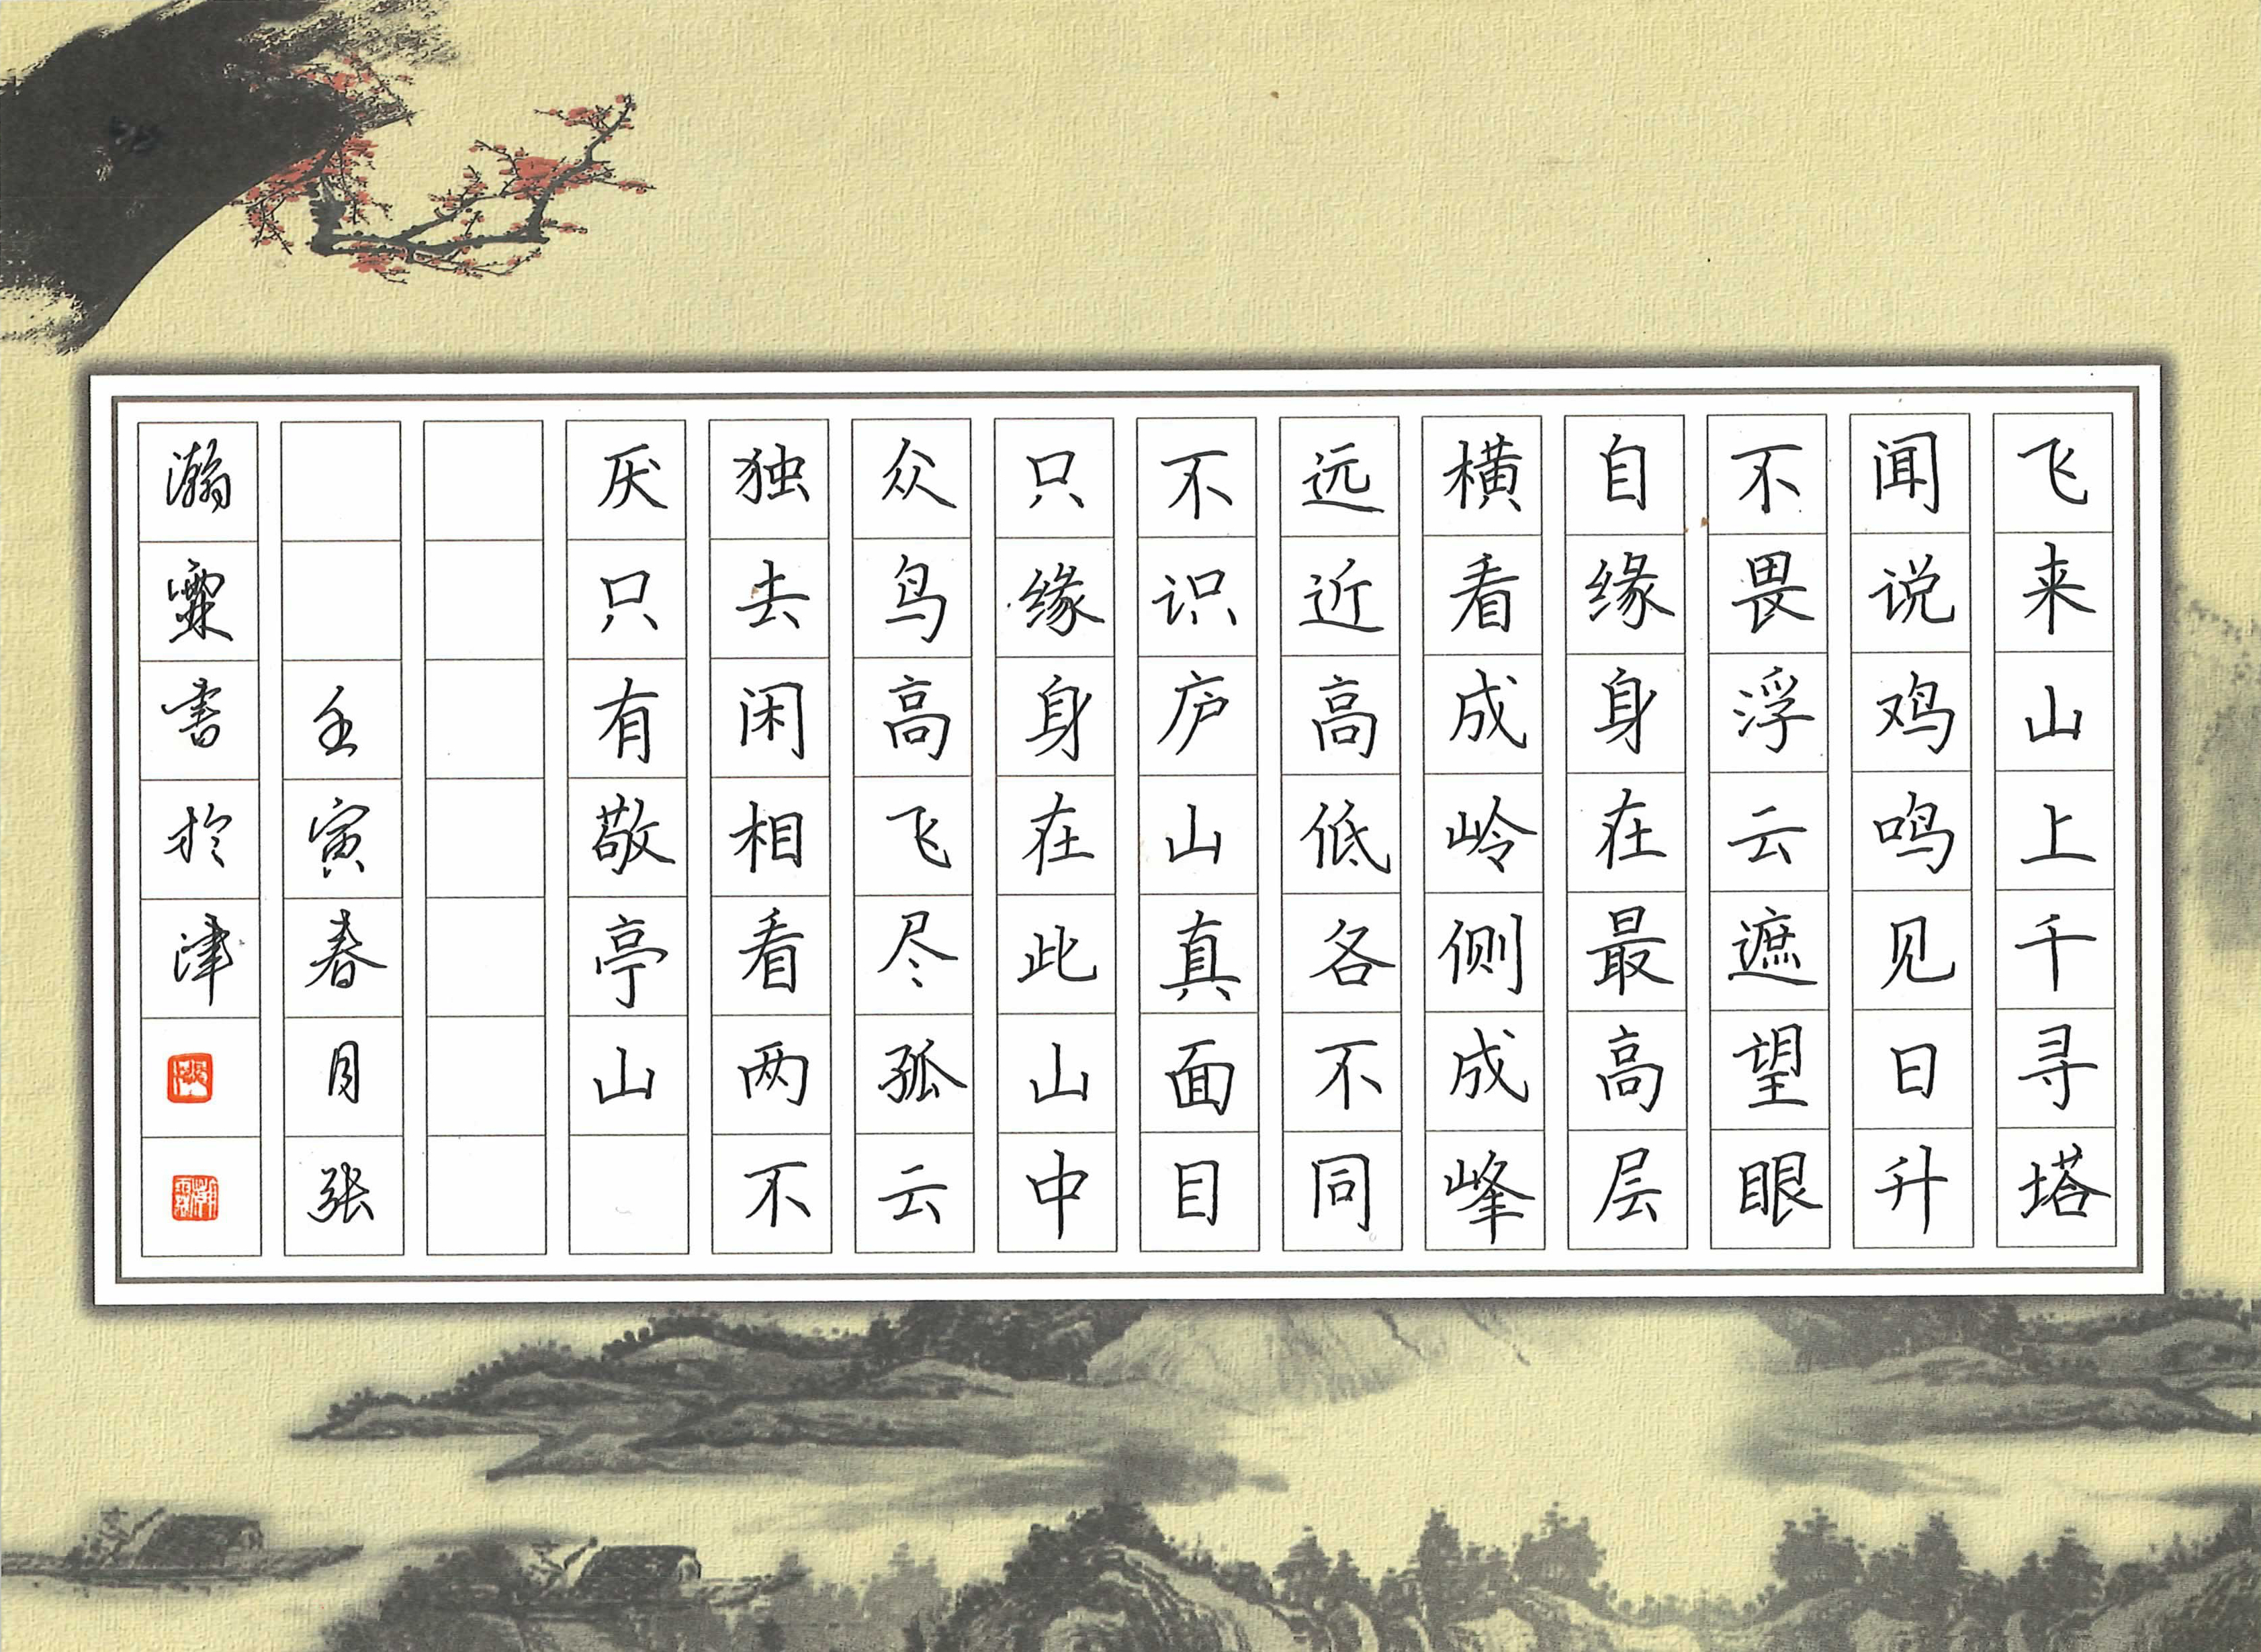 飞来山上千寻塔
闻说鸡鸣见日升
不畏浮云遮望眼
自缘身在最高层
横看成岭侧成峰
远近高低各不同
不识庐山真面目
只缘身在此山中
众鸟高飞尽孤云
独去闲相看两不
厌只有敬亭山
壬寅春月张
瀚霖书於津